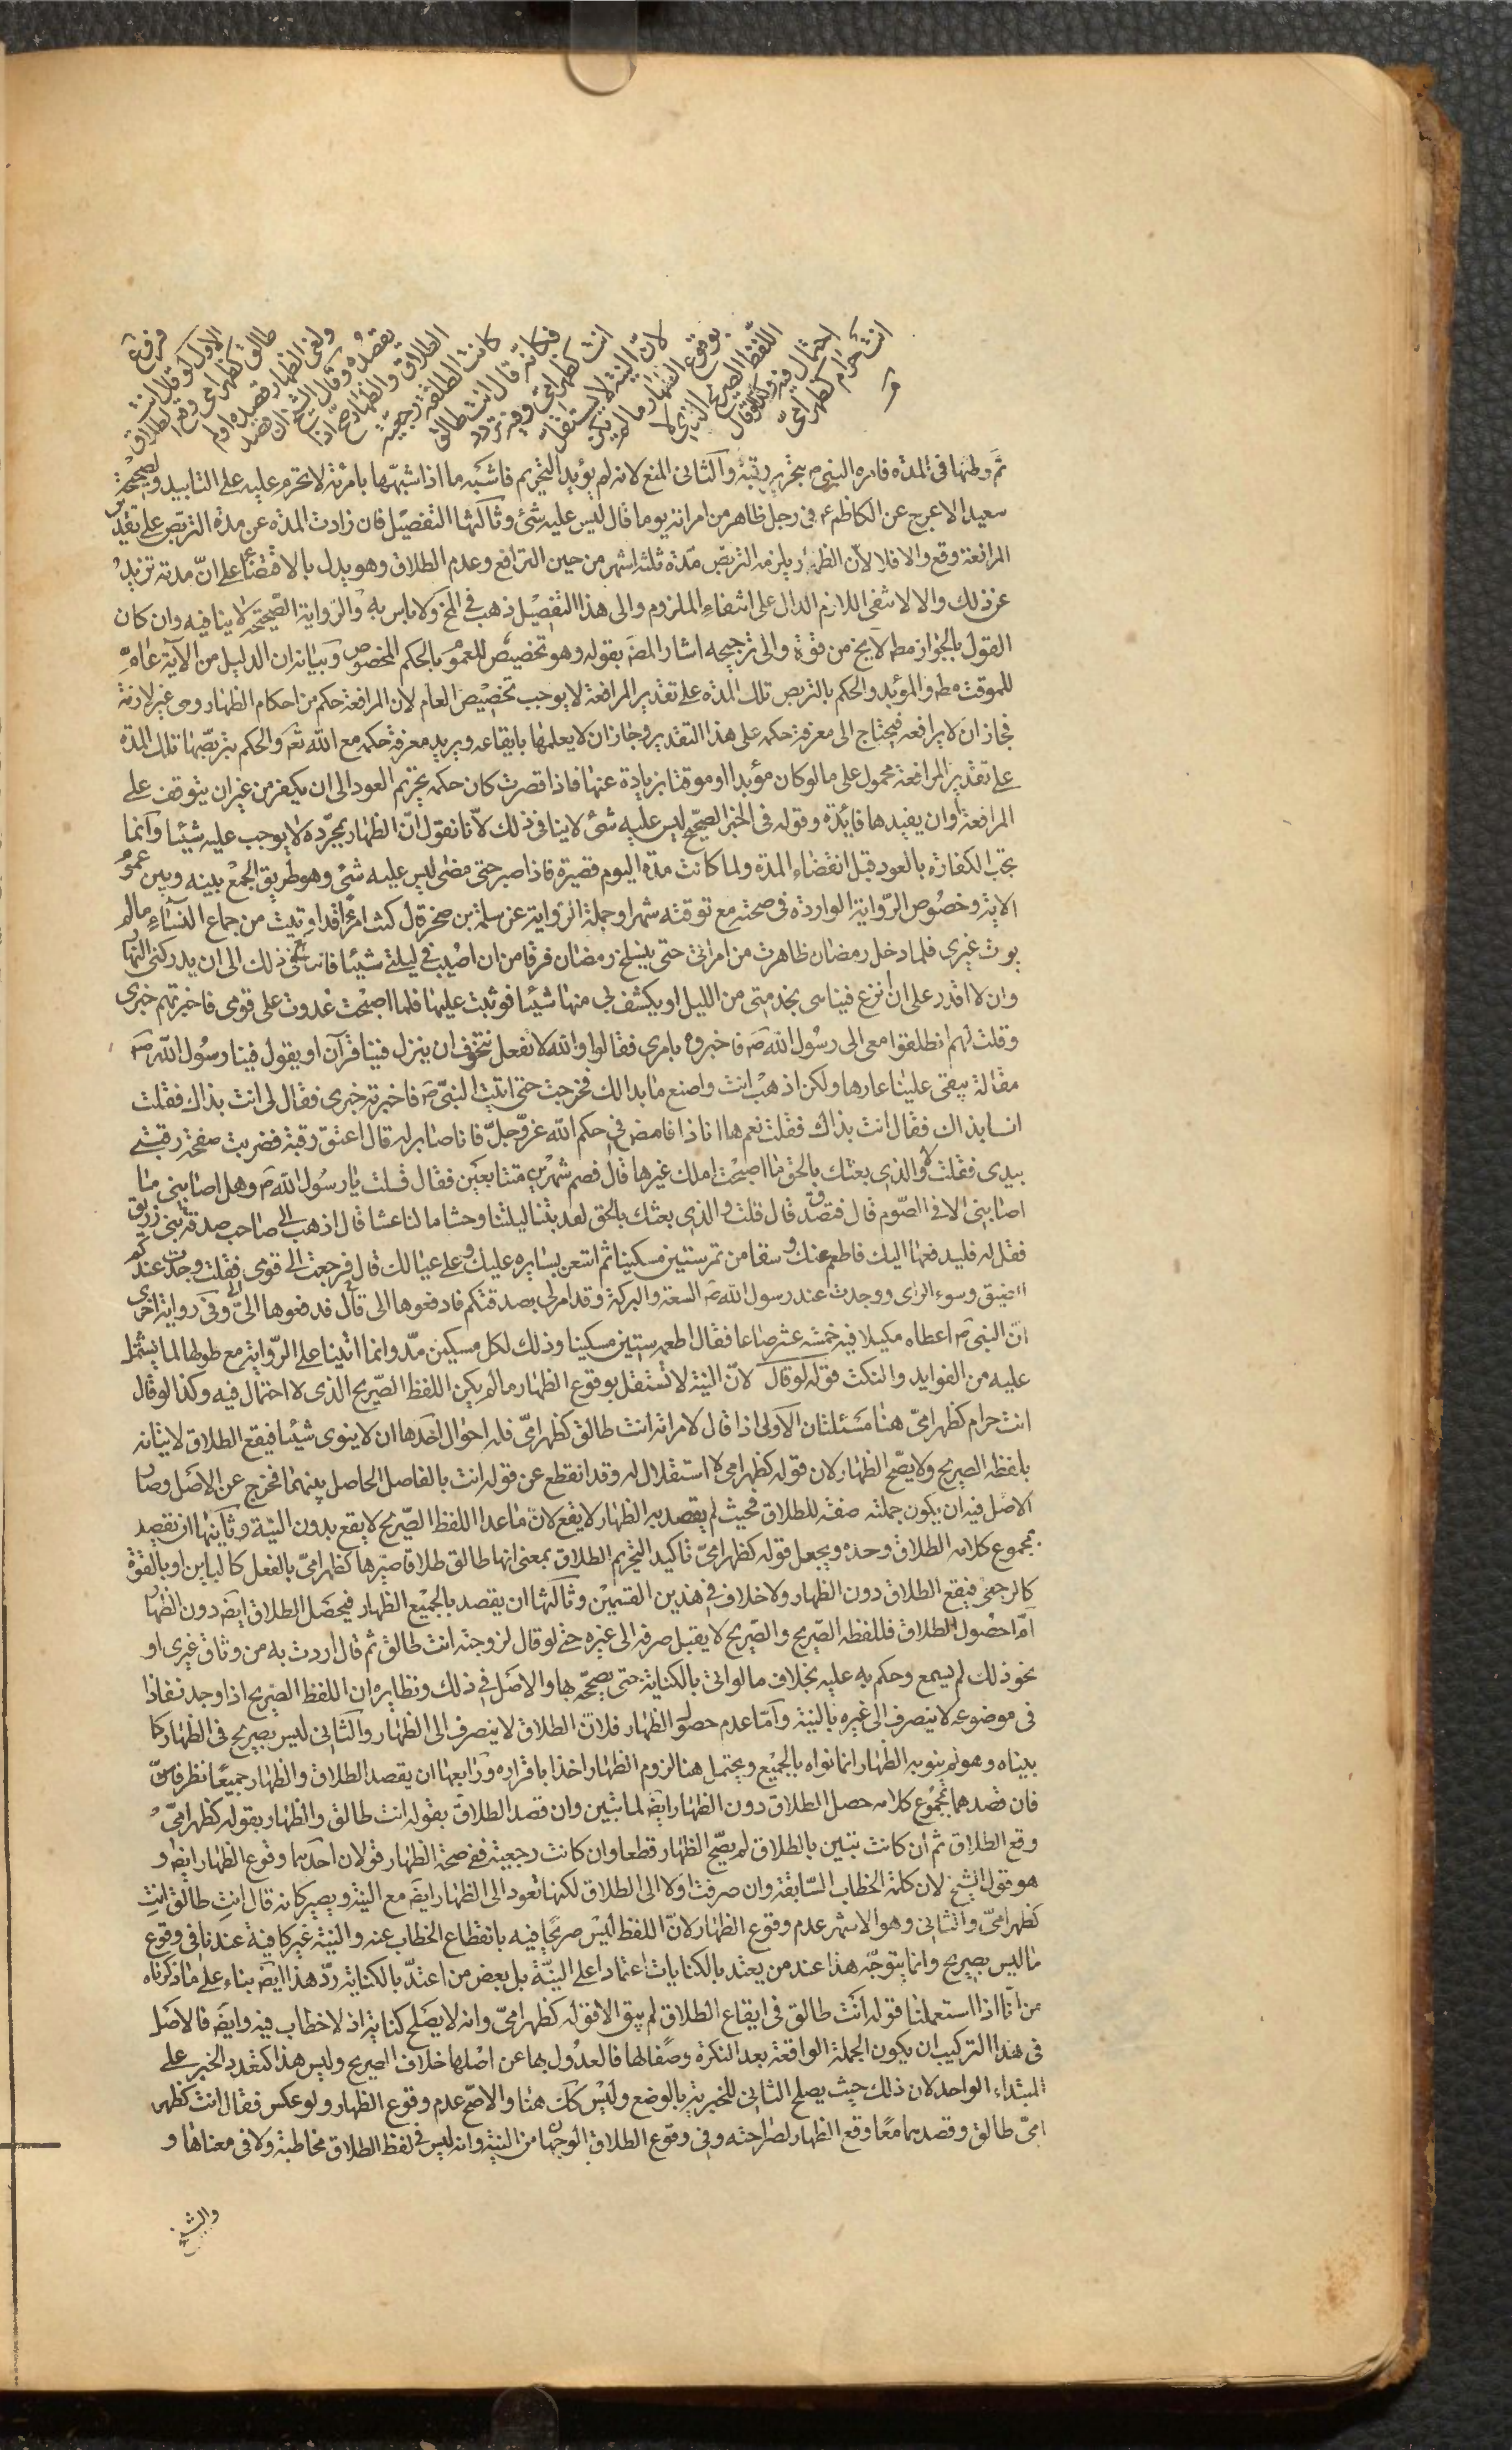 فروع
الاول لو قال انت
طالق كظهر امى وقع الطلاق
ولغى الظهار قصده او لم
يقصده وقال الشيخ ان قصد
الطلاق والظهار صح اذا
كانت الطلقة رجعية
فكانه قال انت طالق
انت كظهر امى وفيه تردد
لان النية لا يستقل
بوقوع الظهار ما لم يكن
اللفظ الصريح الذى لا
احتمال فيه وكذا لو قال
انت حرام كظهر امى
ثم وطئها فى المدة فامره النبى ص بتحرير رقبة والثانى المنع لانه لم يؤبد التحريم فاشبه ما اذا شبهها بامرئة لا تحرم عليه على التابيد ولصحيحة
سعيد الاعرج عن الكاظم ع فى رجل ظاهر من امراته يوما قال ليس عليه شئ وثالثها التفصيل فان زادت المدة عن مدة التربص على تقدير
المرافعة وقع والا فلا لان الظهار يلزمه التربص مدة ثلثة اشهر من حين الترافع وعدم الطلاق وهو يدل بالاقتضاء على ان مدته تزيد
عن ذلك والا لانتفى اللازم الدال على انتفاء الملزوم والى هذا التفصيل ذهب فى المخ ولا باس به والرواية الصحيحة لا ينافيه وان كان
القول بالجواز مطه لا يخ من قوة والى ترجيحه اشار المصه بقوله وهو تخصيص للعموم بالحكم المخصوص وبيانه ان الدليل من الاية عام
للموقت مطه والمؤبد والحكم بالتربص تلك المدة على تقدير المرافعة لا يوجب تخصيص العام لان المرافعة حكم من احكام الظهار وهى غير لازمة
فجاز ان لا يرافعه فيحتاج الى معرفة حكمه على هذا التقدير وجاز ان لا يعلمها بايقاعه ويريد معرفة حكمه مع الله تعه والحكم بتربصها تلك المدة
على تقدير المرافعة محمول على ما لو كان مؤبدا او موقتا بزيادة عنها فاذا قصرت كان حكمه تحريم العود الى ان يكفر من غير ان يتوقف على
المرافعة وان يفيدها فائدة وقوله فى الخبر الصحيح ليس عليه شئ لا ينافى ذلك لانا نقول ان الظهار بمجرده لا يوجب عليه شيئا وانما
تجب الكفارة بالعود قبل انقضاء المدة ولما كانت مدة اليوم قصيرة فاذا صبر حتى مضى ليس عليه شئ وهو طريق الجمع بينه وبين عموم
الاية وخصوص الرواية الواردة فى صحته مع توقته شهرا وجملة الرواية عن سلمة بن صخرة ل كنت امرءا قد اوتيت من جماع النساء ما لم
يوت غيرى فلما دخل رمضان ظاهرت من امراتى حتى ينسلخ رمضان فرقا من ان اصيب فى ليلتى شيئا فاتتابع فى ذلك الى ان يدركنى النهار
وان لا اقدر على ان انزع فبينا هى تخدمنى من الليل اذ تكشف لى منها شيئا فوثبت عليها فلما اصبحت غدوت على قومى فاخبرتهم خبرى
وقلت لهم انطلقوا معى الى رسول الله ص فاخبروه بامرى فقالوا والله لا نفعل نتخوف ان ينزل فينا قرآن او يقول فينا رسول الله ص
مقالة يبقى علينا عارها ولكن اذهب انت واصنع ما بدا لك فخرجت حتى اتيت النبى ص فاخبرته خبرى فقال لى انت بذاك فقلت
انا بذاك فقال انت بذاك فقلت نعم ها انا ذا فامض فى حكم الله عز وجل فانا صابر له قال اعتق رقبة فضربت صفحة رقبتى
بيدى فقلت لا والذى بعثك بالحق ما اصبحت املك غيرها قال فصم شهرين متتابعين فقال قلت يا رسول الله ص وهل اصابنى ما
اصابنى الا فى الصوم قال فتصدق قال قلت والذى بعثك بالحق لقد بتنا ليلتنا وحشا ما لنا عشا قال اذهب الى صاحب صدقة بنى زريق
فقل له فليدفعها اليك فاطعم عنك وسقا من تمر ستين مسكينا ثم استعن بسايره عليك وعلى عيالك قال فرجعت الى قومى فقلت وجدت عندكم
الضيق وسوء الراى ووجدت عند رسول الله ص السعة والبركة وقد امر لى بصدقتكم فادفعوها الى قال فدفعوها الى وفى رواية اخرى
ان النبى ص اعطاه مكيلا فيه خمسة عشر صاعا فقال اطعمه ستين مسكينا وذلك لكل مسكين مد وانما اتينا على الرواية مع طولها لما يشتمل
عليه من الفوايد والنكت قوله لو قال لان النية لا تستقل بوقوع الظهار ما لم يكن اللفظ الصريح الذى لا احتمال فيه وكذا لو قال
انت حرام كظهر امى هنا مسئلتان الاولى اذا قال لامراته انت طالق كظهر امى فله احوال احدها ان لا ينوى شيئا فيقع الطلاق لاتيانه
بلفظه الصريح ولا يصح الظهار لان قوله كظهر امى لا استقلال له وقد انقطع عن قوله انت بالفاصل الحاصل بينهما فخرج عن الاصل وصار
الاصل فيه ان يكون جملته صفة للطلاق فحيث لم يقصد به الظهار لا يقع لان ما عدا اللفظ الصريح لا يقع بدون النية وثانيها ان يقصد
بمجموع كلامه الطلاق وحده ويجعل قوله كظهر امى تاكيد التحريم الطلاق بمعنى انها طالق طلاقا صيرها كظهر امى بالفعل كالباين او بالقوة
كالرجعى فيقع الطلاق دون الظهار ولا خلاف فى هذين القسمين وثالثها ان يقصد بالجميع الظهار فيحصل الطلاق ايضه دون الظهار
اما حصول الطلاق فللفظه الصريح والصريح لا يقبل صرفه الى غيره حتى لو قال لزوجته انت طالق ثم قال اردت به من وثاق غيرى او
نحو ذلك لم يسمع وحكم به عليه بخلاف ما لو اتى بالكناية حتى يصححه بها والاصل فى ذلك ونظايره ان اللفظ الصريح اذا وجد نفاذا
فى موضوعه لا ينصرف الى غيره بالنية واما عدم حصول الظهار فلان الطلاق لا ينصرف الى الظهار والثانى ليس بصريح فى الظهار كما
بيناه وهو لم ينو به الظهار انما نواه بالجميع ويحتمل هنا لزوم الظهار اخذا باقراره ورابعها ان يقصد الطلاق والظهار جميعا نظر
فان قصدهما بمجموع كلامه حصل الطلاق دون الظهار ايضه لما تبين وان قصد الطلاق بقوله انت طالق والظهار بقوله كظهر امى
وقع الطلاق ثم ان كانت تبين بالطلاق لم يصح الظهار قطعا وان كانت رجعية ففى صحة الظهار قولان احدهما وقوع الظهار ايضا و
هو قول الشيخ لان كلمة الخطاب السابقة وان صرفت اولا الى الطلاق لكنها تعود الى الظهار ايضه مع النية ويصير كانه قال انت طالق انت
كظهر امى والثانى وهو الاشهر عدم وقوع الظهار لان اللفظ ليس صريحا فيه بانقطاع الخطاب عنه والنية غير كافية عندنا فى وقوع
ما ليس بصريح وانما يتوجه هذا عند من يعتد بالكنايات اعتمادا على النية بل بعض من اعتد بالكناية رد هذا ايضه بناء على ما ذكرناه
من انا اذا استعملنا قوله انت طالق فى ايقاع الطلاق لم يبق الا قوله كظهر امى وانه لا يصلح كناية اذ لا خطاب فيه وايضه فالاصل
فى هذا التركيب ان يكون الجملة الواقعة بعد النكرة وصفا لها فالعدول بها عن اصلها خلاف الصريح وليس هذا كتعدد الخبر على
المبتداء الواحد لان ذلك حيث يصلح الثانى للخبرية بالوضع وليس كك هنا والاصح عدم وقوع الظهار ولو عكس فقال انت كظهر
امى طالق وقصدهما معا وقع الظهار لصراحته وفى وقوع الطلاق الوجهان من النية وانه ليس فى لفظ الطلاق مخاطبة ولا فى معناها و
والشيخ